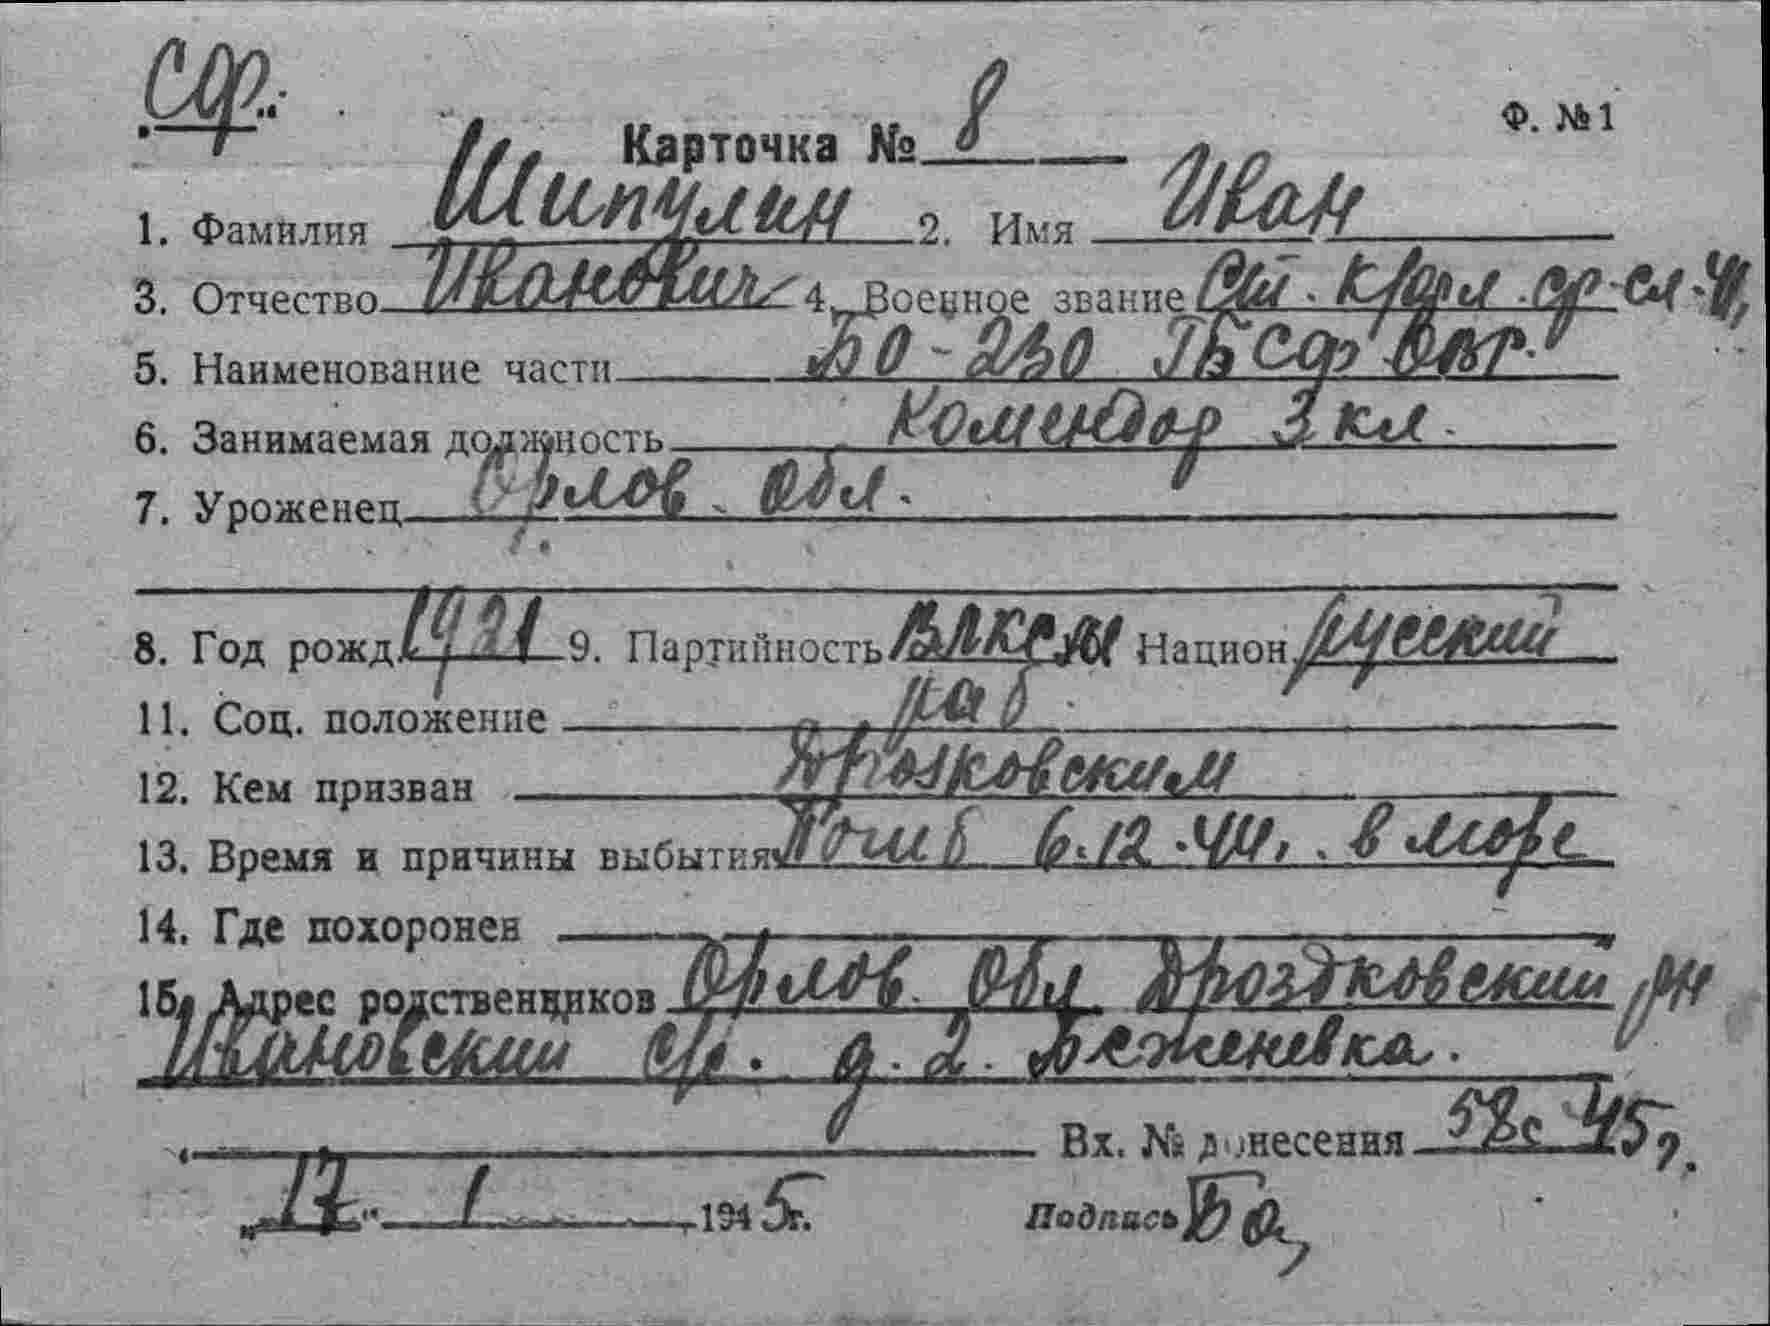 СФ.
Ф. №1
Карточка № 8
1. Фамилия Шипулин 2. Имя Иван
3. Отчество Иванович 4. Военное звание Ст. кр. ср. сл.
5. Наименование части БО-230 ГБ СФ ОВР.
6. Занимаемая должность Комендор 3 кл.
7. Уроженец Орлов. Обл.
8. Год рожд. 1921 9. Партийность ВЛКСМ Национ. русский
11. Соц. положение раб.
12. Кем призван Дрозковским
13. Время и причины выбытия Погиб 6.12.44г. в море
14. Где похоронен
15. Адрес родственников Орлов. Обл. Дроздковский рн
Ивановский с/с. д. 2. Беженевка.
Вх. № донесения 58с 45г.
„17“ 1 1945г. Подпись